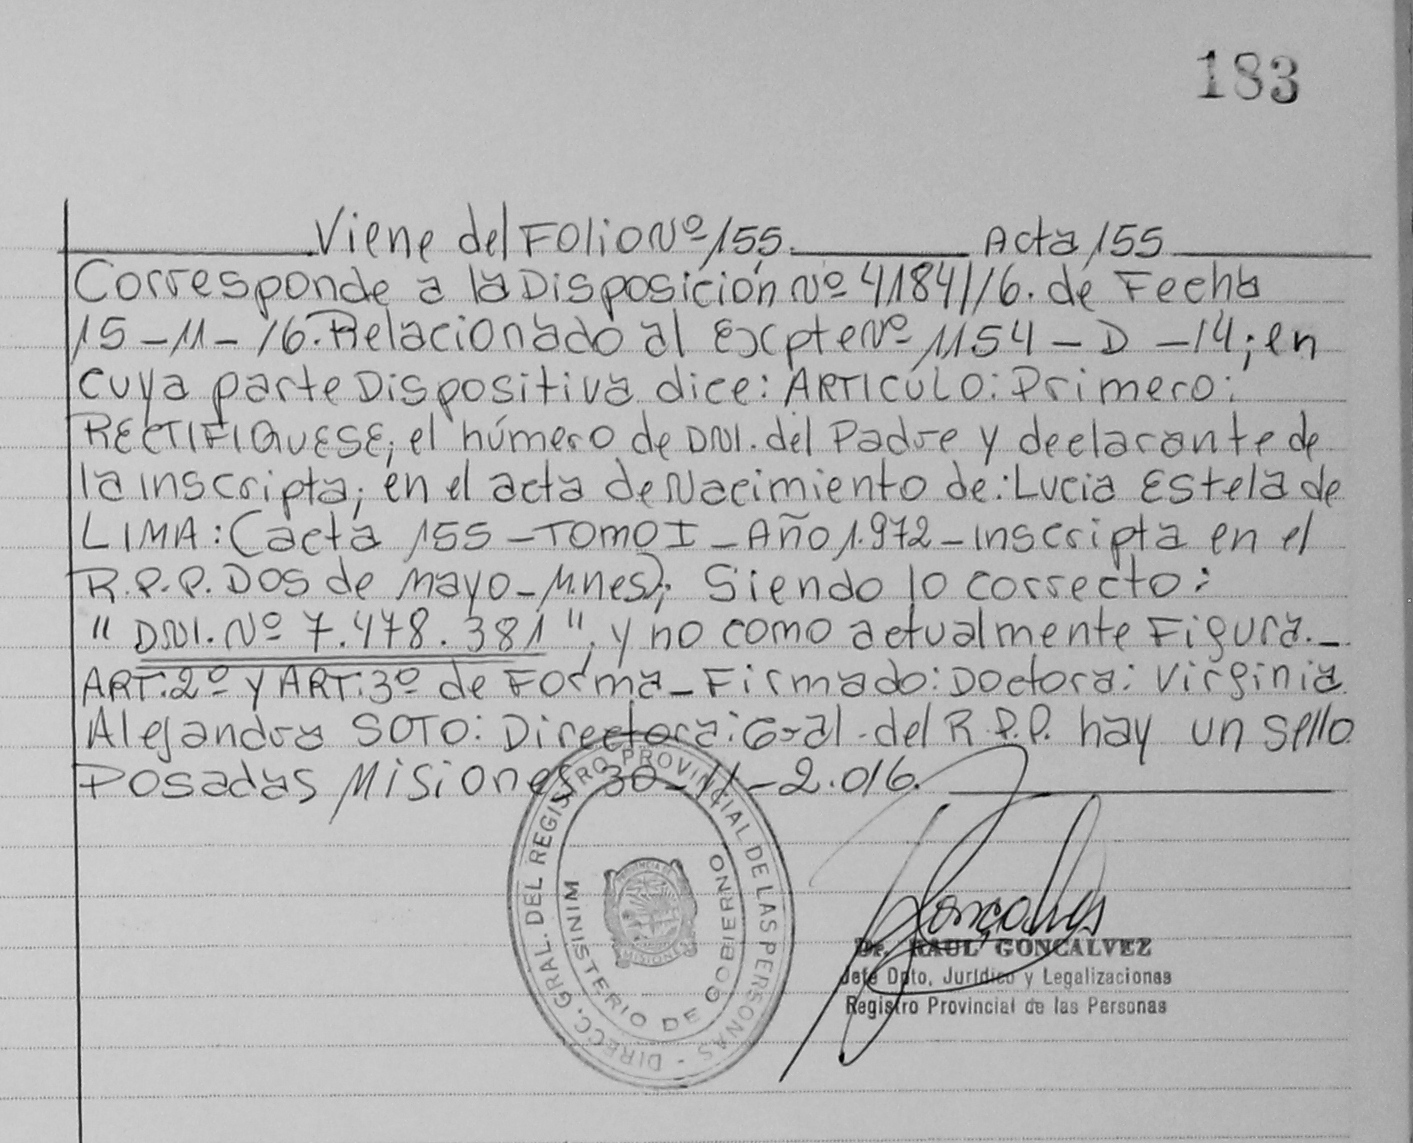 183
Viene del Folio Nº 155. Acta 155
Corresponde a la Disposición Nº 4184/16. de Fecha
15-11-16. Relacionado al Excpte Nº 1154-D-14; en
cuya parte Dispositiva dice: ARTICULO: Primero:
RECTIFIQUESE; el número de DNI. del Padre y declarante de
la inscripta; en el acta de Nacimiento de: Lucia Estela de
LIMA: (acta 155-TOMO I-Año 1.972-inscripta en el
R.P.P. DOS de Mayo-Mnes); Siendo lo correcto:
"DNI. Nº 7.478.381", y no como actualmente Figura.-
ART.2º Y ART.3º de Forma-Firmado: Doctora: Virginia
Alejandra SOTO: Directora: Gral. del R.P.P. hay un sello
Posadas Misiones 30-11-2.016.
DIRECC. GRAL. DEL REGISTRO PROVINCIAL DE LAS PERSONAS -
MINISTERIO DE GOBIERNO
MISIONES
Dr. RAUL GONCALVEZ
Jefe Dpto. Jurídico y Legalizaciones
Registro Provincial de las Personas